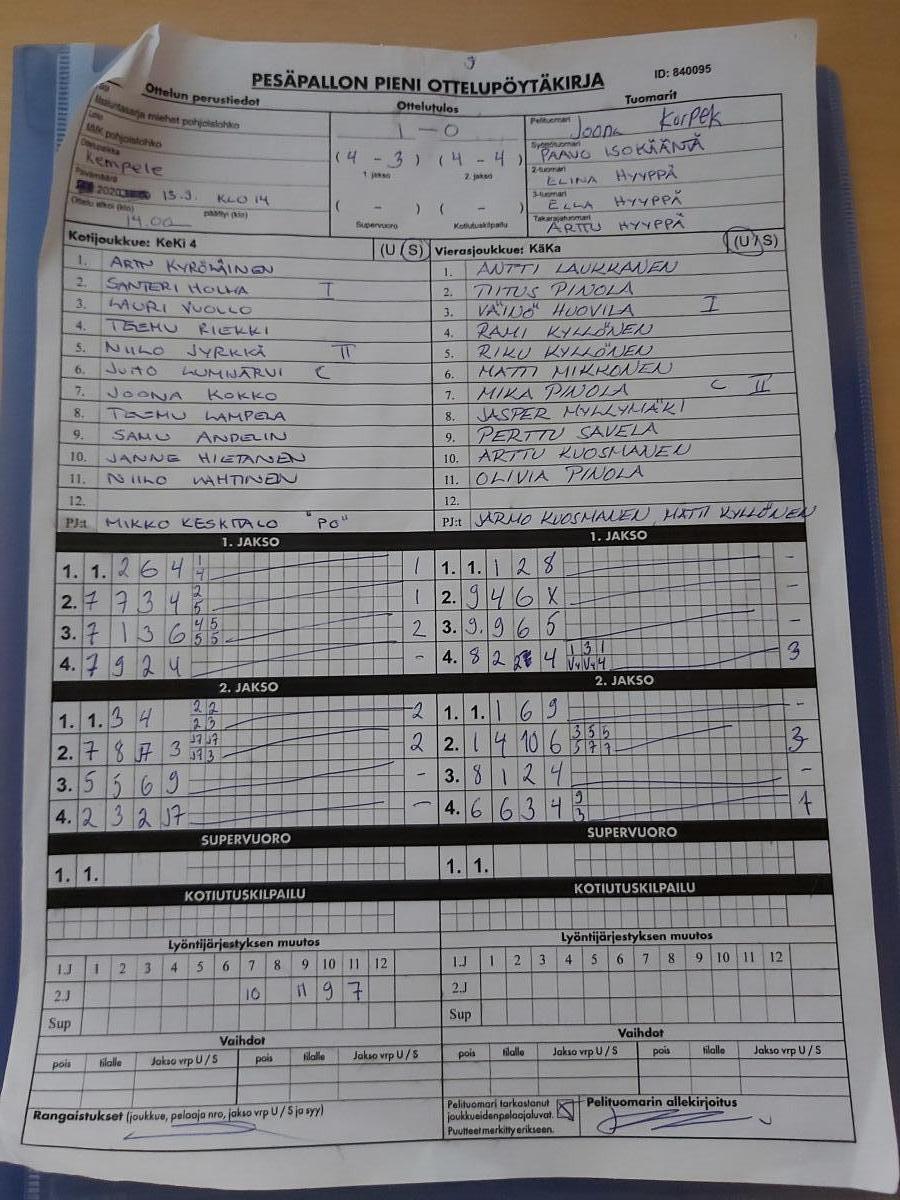 PESÄPALLON PIENI OTTELUPÖYTÄKIRJA
ID: 840095
Ottelun perustiedot
Ottelutulos
Tuomarit
Maakuntasarja miehet pohjoislohko
Lohko
MMK pohjoislohko
Kempele
Päivämäärä
2020 13.9. KLO 14
Ottelu alkoi (klo) päättyi (klo)
14.00
1 - 0
(4 - 3) (4 - 4)
1. jakso 2. jakso
( - ) ( - )
Supervuoro Kotiutuskilpailu
Pelituomari Joona
Syöttötuomari PAAVO ISOKÄÄNTÄ
2-tuomari ELINA HYYPPÄ
3-tuomari ELLA HYYPPÄ
Takarajatuomari ARTTU HYYPPÄ
Kotijoukkue: KeKi 4 (U/S)
1. ARTTU KYRÖLÄINEN
2. SANTERI HOLMA I
3. LAURI VUOLLO
4. TEEMU RIEKKI
5. NIILO JYRKKÄ II
6. JUHO LUMIJÄRVI C
7. JOONA KOKKO
8. TEEMU LAMPELA
9. SAMU ANDELIN
10. JANNE HIETANEN
11. NIILO LAHTINEN
12.
PJ:t MIKKO KESKITALO "PO"
Vierasjoukkue: KäKa (U/S)
1. ANTTI LAUKKANEN
2. TIITUS PINOLA
3. VÄINÖ HUOVILA I
4. RAMI KYLLÖNEN
5. RIKU KYLLÖNEN
6. MATTI MIKKONEN
7. MIKA PINOLA C II
8. JASPER MYLLYMÄKI
9. PERTTU SAVELA
10. ARTTU KUOSMANEN
11. OLIVIA PINOLA
12.
PJ:t JARMO KUOSMANEN, MATTI KYLLÖNEN
1. JAKSO
1. 1. 2 6 4 1/4 1
2. 7 7 3 4 2/5 1
3. 7 1 3 6 4/5 5/5 2
4. 7 9 2 4 -
1. JAKSO
1. 1. 1 2 8 -
2. 9 4 6 X -
3. 9. 9 6 5 -
4. 8 2 4 3
2. JAKSO
1. 1. 3 4 2/2 2/3 2
2. 7 8 J7 3 J7/J7 J7/3 2
3. 5 5 6 9 -
4. 2 3 2 J7 -
2. JAKSO
1. 1. 1 6 9 -
2. 1 4 10 6 3/5 5/7 5/7 3
3. 8 1 2 4 -
4. 6 6 3 4 9/3 1
SUPERVUORO
1. 1.
SUPERVUORO
1. 1.
KOTIUTUSKILPAILU
KOTIUTUSKILPAILU
Lyöntijärjestyksen muutos
1.J 1 2 3 4 5 6 7 8 9 10 11 12
2.J 10 11 9 7
Sup
Lyöntijärjestyksen muutos
1.J 1 2 3 4 5 6 7 8 9 10 11 12
2.J
Sup
Vaihdot
pois tilalle Jakso vrp U / S pois tilalle Jakso vrp U / S
Vaihdot
pois tilalle Jakso vrp U / S pois tilalle Jakso vrp U / S
Rangaistukset (joukkue, pelaaja nro, jakso vrp U / S ja syy)
Pelituomari tarkastanut
joukkueidenpelaajaluvat.
Puutteet merkitty erikseen.
Pelituomarin allekirjoitus